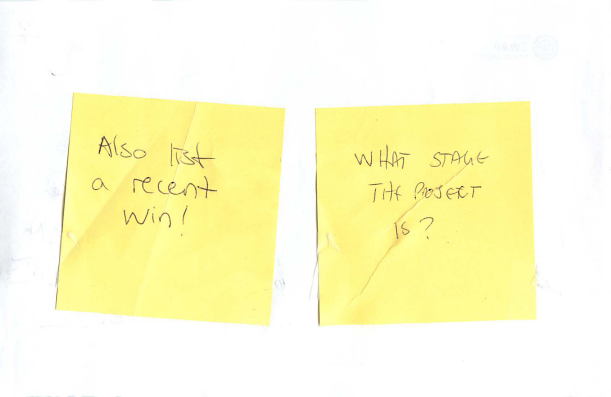 Also list
a recent
win!
WHAT STAGE
THE PROJECT
IS?